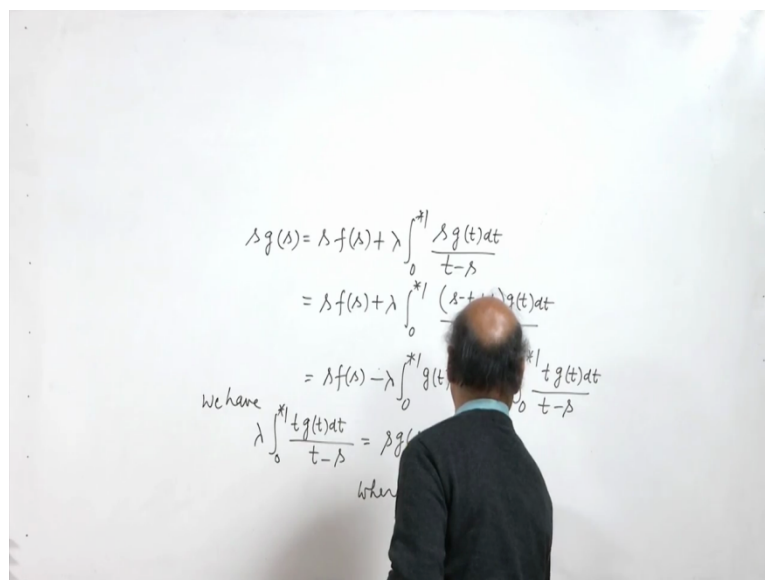 sg(s) = sf(s) + λ∫₀*¹ sg(t)dt / t-s
= sf(s) + λ∫₀*¹ (s-t )g(t)dt
= sf(s) - λ∫₀*¹ g(t) ₀*¹ tg(t)dt / t-s
We have
λ∫₀*¹ tg(t)dt / t-s = sg(